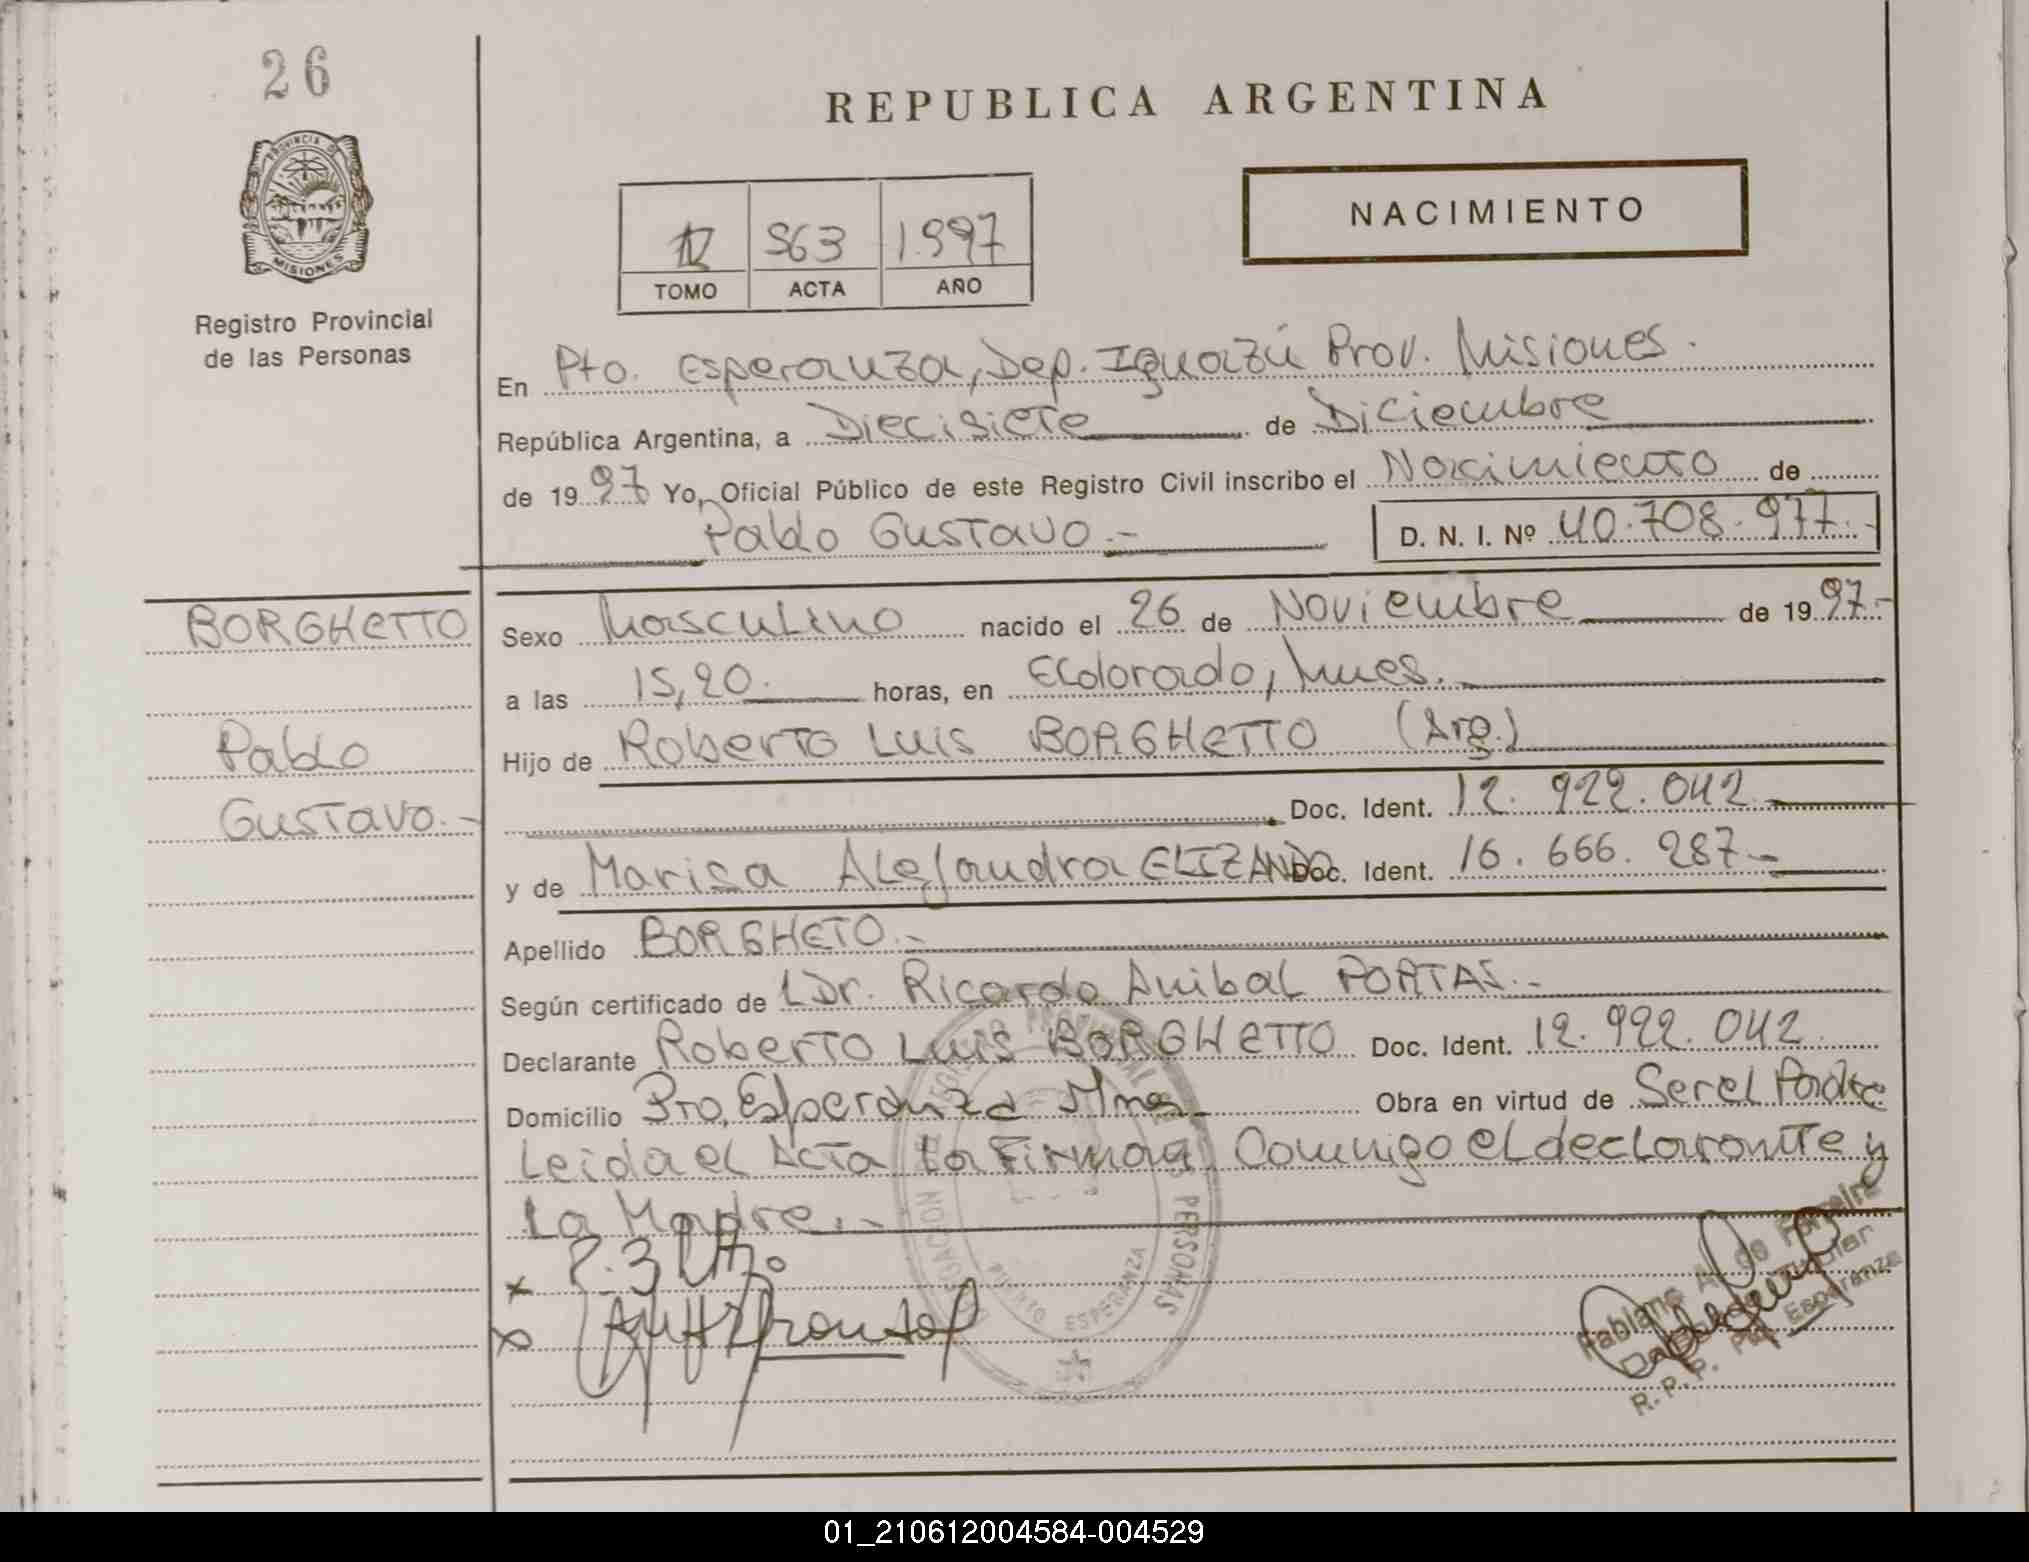 26
REPUBLICA ARGENTINA
PROVINCIA DE
MISIONES
Registro Provincial
de las Personas
963 1.997
TOMO ACTA AÑO
NACIMIENTO
En Pto. Esperanza, Dep. Iguazú Prov. Misiones.
República Argentina, a Diecisiete de Diciembre
de 1997 Yo, Oficial Público de este Registro Civil inscribo el Nacimiento de
Pablo Gustavo.- D. N. I. Nº 40.708.977.-
BORGHETTO
Pablo
Gustavo.-
Sexo Masculino nacido el 26 de Noviembre de 1997.-
a las 15,20. horas, en Eldorado, Mnes.
Hijo de Roberto Luis BORGHETTO (Arg.)
Doc. Ident. 12.922.042
y de Marisa Alejandra ELIZANDO Doc. Ident. 16.666.287.-
Apellido BORGHETO.-
Según certificado de Dr. Ricardo Anibal PORTAS.-
Declarante Roberto Luis BORGHETTO Doc. Ident. 12.922.042
Domicilio Pto. Esperanza Mnes Obra en virtud de Ser el Padre
Leida el Acta la Firman Conmigo el declarante y
La Madre.-
REGISTRO PROVINCIAL PERSONAS
PUERTO ESPERANZA
R. P. P. Pto. Esperanza
01_210612004584-004529